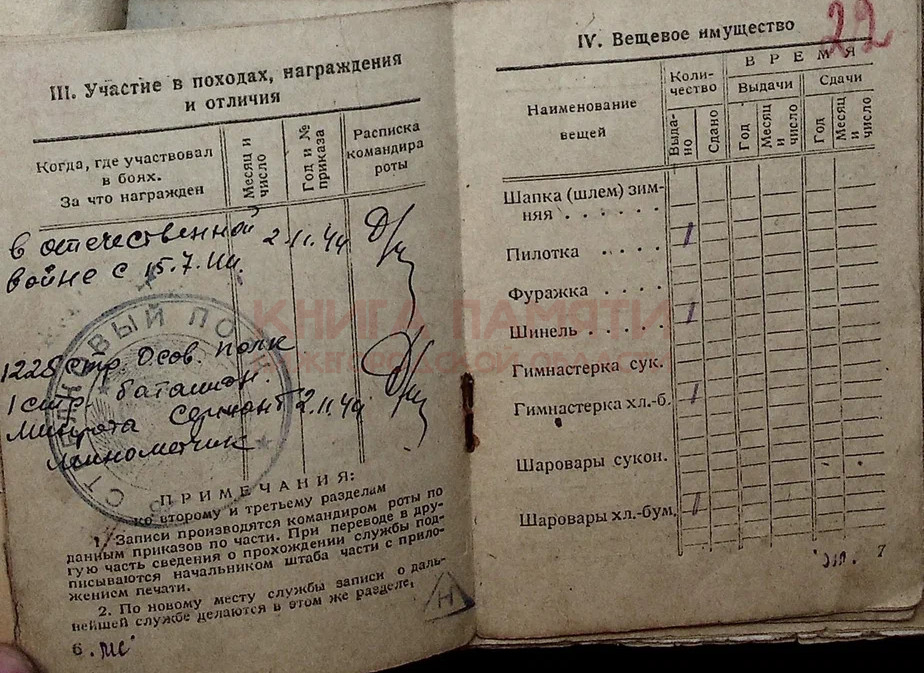 III. Участие в походах, награждения
и отличия
Когда, где участвовал
в боях.
За что награжден
Месяц и
число
Год и №
приказа
Расписка
командира
роты
в отечественной
войне с 15.7.44.
2.11.44
1225 стр. Особ. полк
1 стр. баталион.
Минрота Сержант 2.11.44
минометчик
ПРИМЕЧАНИЯ:
ко второму и третьему разделам
1. Записи производятся командиром роты по
данным приказов по части. При переводе в дру-
гую часть сведения о прохождении службы под-
писываются начальником штаба части с прило-
жением печати.
2. По новому месту службы записи о даль-
нейшей службе делаются в этом же разделе.
Н
6
22
IV. Вещевое имущество
Наименование
вещей
Коли-
чество
ВРЕМЯ
Выдачи
Сдачи
Выда-
но
Сдано
Год
Месяц
и
число
Год
Месяц
и
число
Шапка (шлем) зим-
няя . . . . . .
Пилотка . . . . 1
Фуражка . . . .
Шинель . . . . . 1
Гимнастерка сук.
Гимнастерка хл.-б. 1
Шаровары сукон.
Шаровары хл.-бум. 1
7
КНИГА ПАМЯТИ
НИЖЕГОРОДСКОЙ ОБЛАСТИ